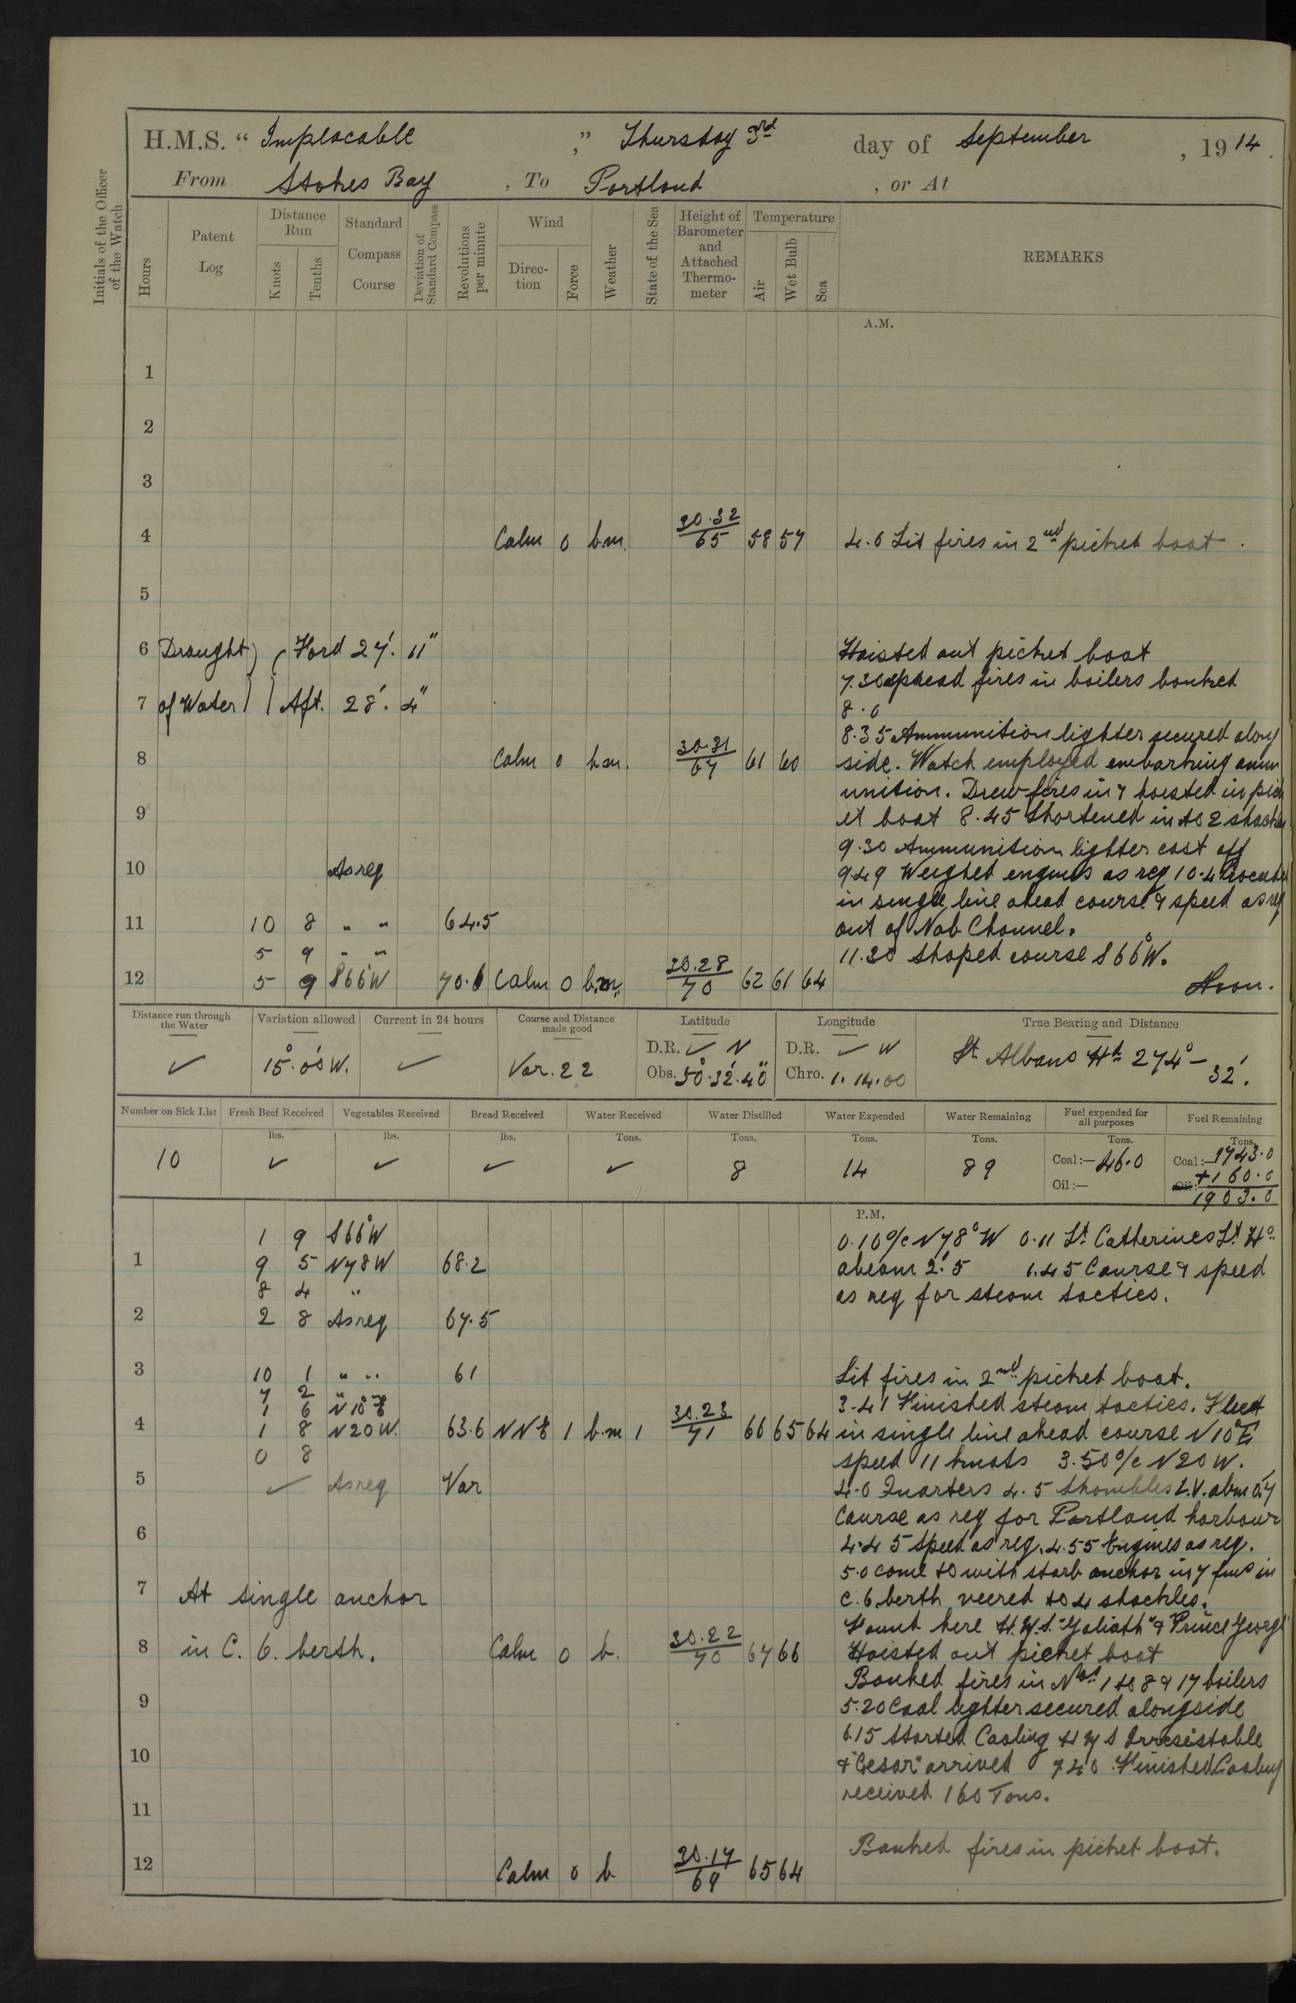 H.M.S. “ Implacable ” Thursday 3rd day of September , 1914.
From Stokes Bay , To Portland , or At
Initials of the Officer of the Watch
Hours
Patent Log
Distance Run
Knots
Tenths
Standard Compass Course
Deviation of Standard Compass
Revolutions per minute
Wind
Direc-tion
Force
Weather
State of the Sea
Height of Barometer and Attached Thermo-meter
Temperature
Air
Wet Bulb
Sea
REMARKS
A.M.
1
2
3
4 Calm 0 b.m. 30.32/65 58 57 4.0 Lit fires in 2nd picket boat.
5
6 Draught ( Ford 27'. 11" Hoisted out picket boat
7.30 spread fires in boilers banked
7 of Water ( Aft. 28'. 4" 8.0
8.35 Ammunition lighter secured along
8 Calm 0 b.m. 30.31/67 61 60 side. Watch employed embarking amm
unition. Drew fires in & hoisted in pick
9 et boat 8.45 Shortened in to 2 shackles
9.30 Ammunition lighter cast off
10 As req 9.49 Weighed engines as req 10.4 Proceeded
in single line ahead course & speed as req
11 10 8 " " 64.5 out of Nab Channel.
5 9 " " 11.30 Shaped course S66°W.
12 5 9 S66°W 70.6 Calm 0 b.m. 30.28/70 62 61 64 Noon.
Distance run through the Water
Variation allowed
Current in 24 hours
Course and Distance made good
Latitude
Longitude
True Bearing and Distance
✓ 15°.00'W. ✓ Var. 22 D.R. ✓ N D.R. ✓ W St. Albans Hd. 274° – 32'.
Obs. 50°.32'.40" Chro. 1.14.00
Number on Sick List
Fresh Beef Received
Vegetables Received
Bread Received
Water Received
Water Distilled
Water Expended
Water Remaining
Fuel expended for all purposes
Fuel Remaining
lbs. lbs. lbs. Tons. Tons. Tons. Tons. Tons. Tons.
10 ✓ ✓ ✓ ✓ 8 14 89 Coal:— 46.0 Coal:— 1743.0
Oil:— Oil: +160.0
1903.0
P.M.
1 9 S66°W 0.10 a/c N78°W 0.11 St. Catherines Lt. Ho.
1 9 5 N78W 68.2 abeam 2'.5 1.45 Course & speed
8 4 " as req for steam tactics.
2 2 8 As req 67.5
3 10 1 " " 61 Lit fires in 2nd picket boat.
7 2 " " 3.41 Finished steam tactics. Fleet
1 6 N10°E
4 1 8 N20W. 63.6 NNE 1 b.m 1 30.23/71 66 65 64 in single line ahead course N10°E
0 8 speed 11 knots 3.50 a/c N20W.
5 ✓ As req Var 4.0 Quarters 4.5 Shambles L.V. abm 0'.7
Course as req for Portland harbour
6 4.45 Speed as req. 4.55 Engines as req.
5.0 Come to with starb anchor in 7 fms in
7 At single anchor C.6. berth, veered to 4 shackles.
Found here H.M.S. "Goliath" & "Prince George"
8 in C. 6. berth. Calm 0 b. 30.22/70 67 66 Hoisted out picket boat
Banked fires in Nos. 1 to 8 & 17 boilers
9 5.20 Coal lighter secured alongside
6.15 Started Coaling H M S Irresistable
10 & "Cesar" arrived 7.40 Finished Coaling
received 160 Tons.
11
Banked fires in picket boat.
12 Calm 0 b 30.17/69 65 64